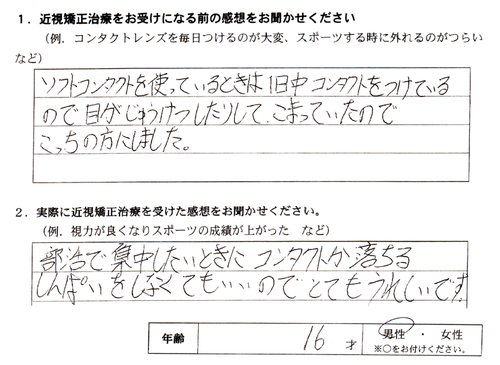 1．近視矯正治療をお受けになる前の感想をお聞かせください
（例．コンタクトレンズを毎日つけるのが大変、スポーツする時に外れるのがつらい
など）
ソフトコンタクトを使っているときは1日中コンタクトをつけている
ので目がじゅうけつしたりして、こまっていたので
こっちの方にしました。
2．実際に近視矯正治療を受けた感想をお聞かせください。
（例．視力が良くなりスポーツの成績が上がった　など）
部活で集中したいときにコンタクトが落ちる
しんぱいをしなくてもいいのでとてもうれしいです。
年齢　16　才　男性　・　女性
※○をお付けください。